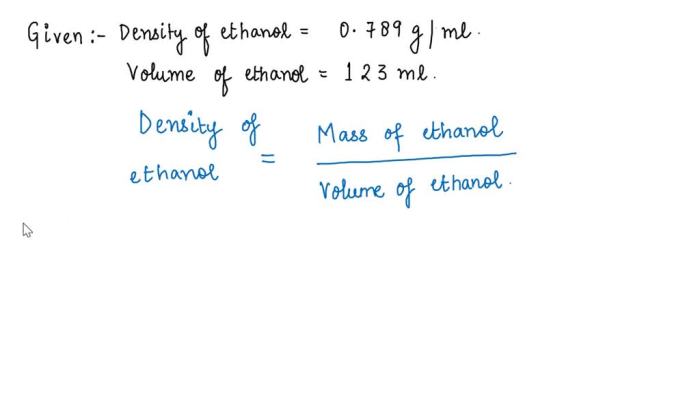 Given :- Density of ethanol = 0.789 g/ml.
Volume of ethanol = 123 ml.
Density of ethanol = Mass of ethanol / Volume of ethanol.